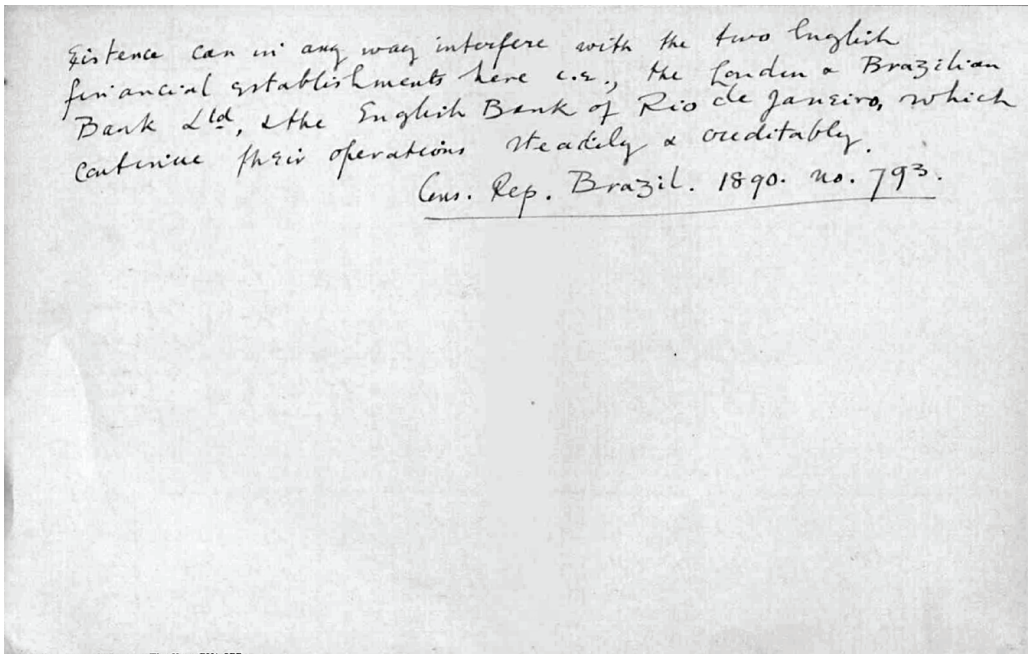 existence can in any way interfere with the two English
financial establishments here i.e., the London & Brazilian
Bank Ltd, & the English Bank of Rio de Janeiro, which
continue their operations steadily & creditably.
Cons. Rep. Brazil. 1890. no. 793.